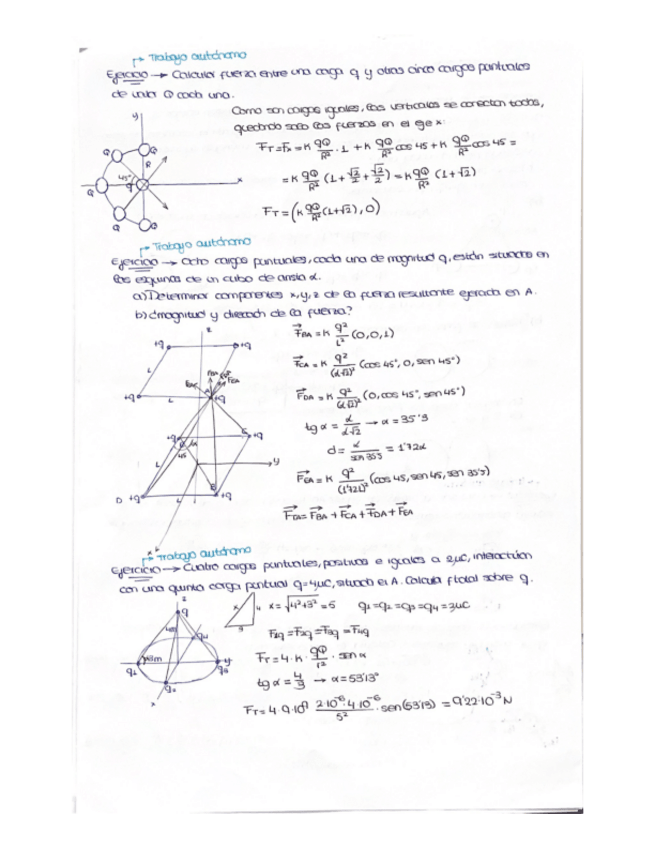 Trabajo autónomo
Ejercicio → Calcular fuerza entre una carga q y otras cinco cargas puntuales
de valor Q cada una.
Como son cargas iguales, las verticales se
todas,
quedando solo las fuerzas en el eje x:
F_T = F_x = K qQ/R² · 1 + K qQ/R² cos 45 + K qQ/R² cos 45 =
= K qQ/R² (1 + √2/2 + √2/2) = K qQ/R² (1+√2)
F_T = (K qQ/R² (1+√2), 0)
y
x
Q
Q
R
45°
Q
q
Q
Q
Trabajo autónomo
Ejercicio → Ocho cargas puntuales, cada una de magnitud q, están situadas en
las esquinas de un cubo de arista
a) Determinar componentes x, y, z de la fuerza resultante ejercida en A.
b) ¿magnitud y dirección de la fuerza?
F_BA = K q²/L² (0,0,1)
F_CA = K q²/(α√2)² (cos 45°, 0, sen 45°)
F_DA = K q²/(α√2)² (0, cos 45°, sen 45°)
tg α = α/α√2 → α = 35'3
d = α/sen 35'3 = 1'72α
F_EA = K q²/(1'72L)² (cos 45, sen 45, sen 35'3)
= F_BA + F_CA + F_DA + F_EA
z
+q
+q
L
+q
L
A
+q
+q
C
+q
45
L
y
D
+q
B
+q
x
Trabajo autónomo
Ejercicio → Cuatro cargas puntuales, positivas e iguales a
μC, interactúan
con una quinta carga puntual q=4μC, situada en A. Calcula f total sobre q.
x = √4²+3² = 5
q1=q2=q3=q4=3μC
F1q = F2q = F3q = F4q
F_T = 4 · K · qQ/r² · sen α
tg α = 4/3 → α = 53'13°
F_T = 4 · 9·10⁹ 2·10⁻⁶·4·10⁻⁶/5² · sen(53'13) = 9'22·10⁻³ N
z
q
4m
3m
y
x
x
4
3